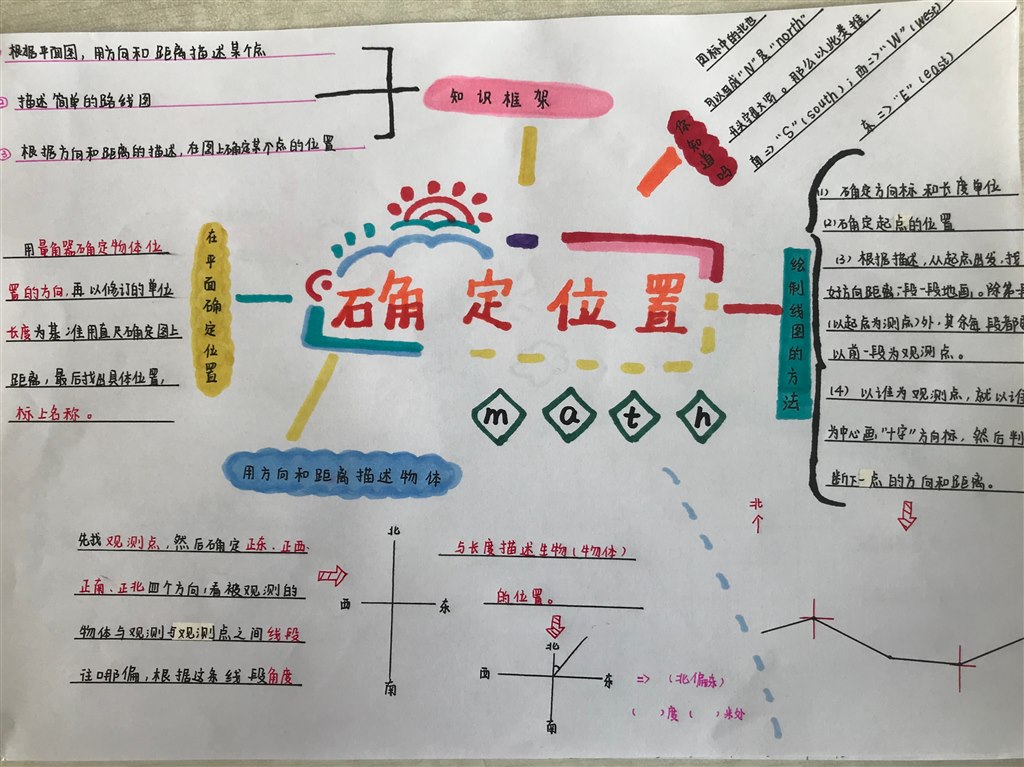 根据平面图,用方向和距离描述某个点
② 描述简单的路线图
③ 根据方向和距离的描述,在图上确定某个点的位置
知识框架
你知道吗
图标中的北也
可以用成"N"是"north"
开头字母大写。那么以此类推,
南=>"S"(south);西=>"W"(west)
东=>"E"(east)
在平面确定位置
用量角器确定物体位
置的方向,再以修订的单位
长度为基准用直尺确定图上
距离,最后找出具体位置,
标上名称。
确定位置
math
绘制线图的方法
(1) 确定方向标和长度单位
(2)确定起点的位置
(3)根据描述,从起点出发,找
好方向距离一段一段地画。除第一
(以起点为测点)外,其余每段都
以前一段为观测点。
(4)以谁为观测点,就以谁
为中心画"十字"方向标,然后判
断下一点的方向和距离。
用方向和距离描述物体
先找观测点,然后确定正东、正西
正南、正北四个方向;看被观测的
物体与观测与观测点之间线段
往哪偏,根据这条线段角度
北
西
东
南
与长度描述生物(物体)
的位置。
北
西
东
南
=> (北偏东)
( )度( )米处
北